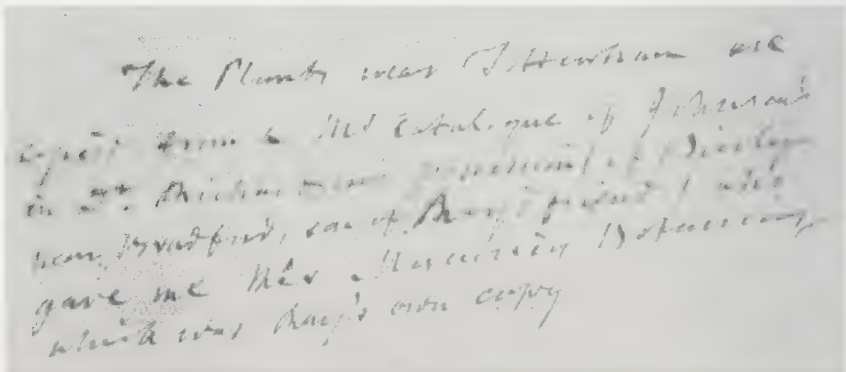 The Plants near Tottenham are
copied from a MS Catalogue of Johnson's
in Dr. Richardson of Bierley
near Bradford, son of Ray's friend) who
gave me this Mercurius Botanicus,
which was Ray's own copy